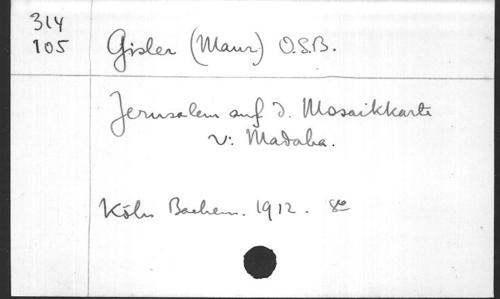 314
105
Gisler (Maur.) O.S.B.
Jerusalem auf d. Mosaikkarte
v: Madaba.
Köln Bachem. 1912. 8º